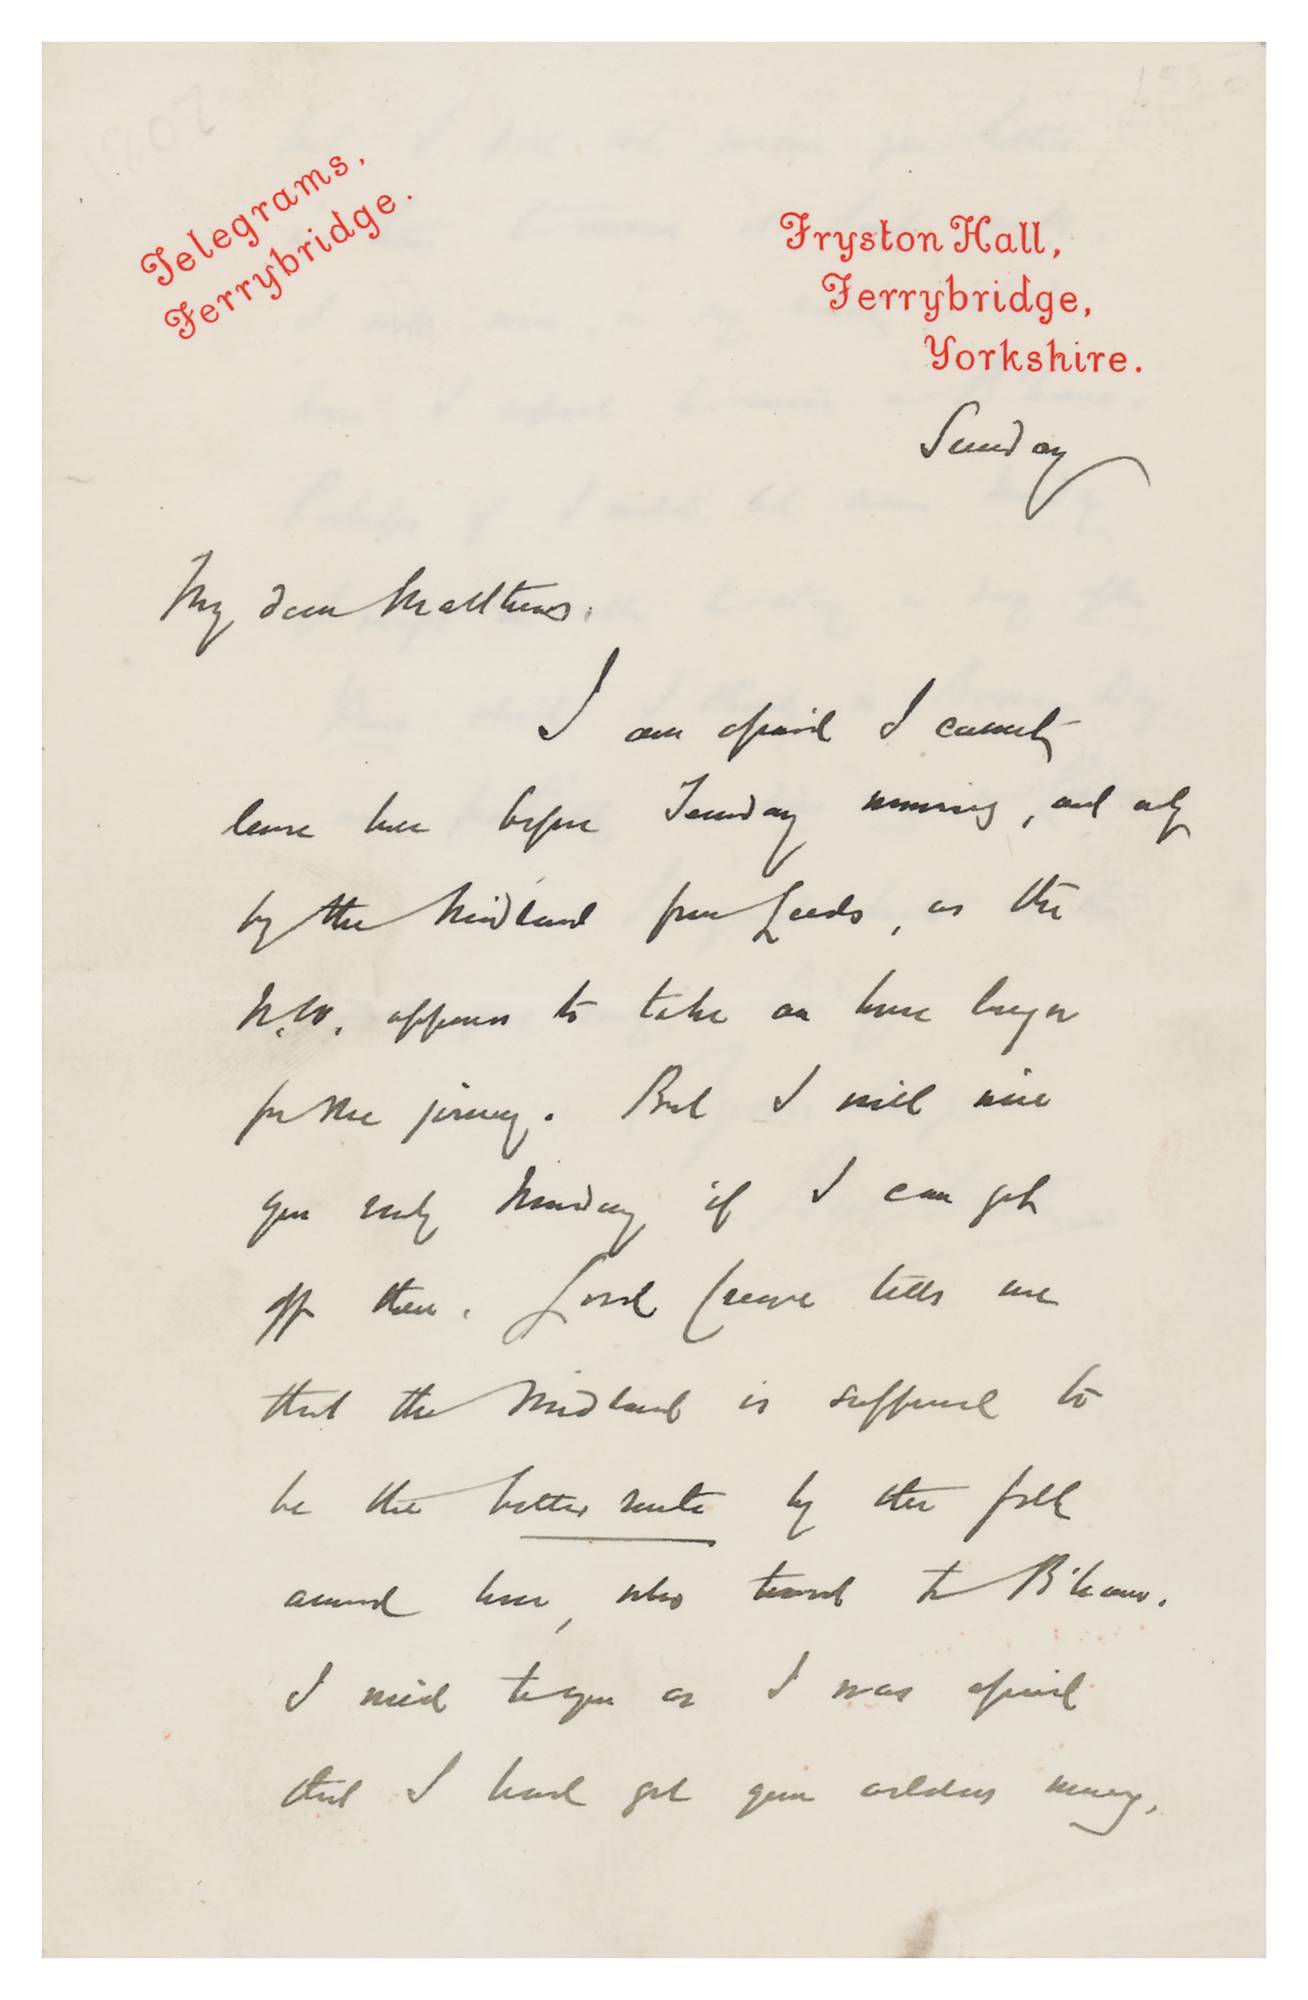 Telegrams,
Ferrybridge.
Fryston Hall,
Ferrybridge,
Yorkshire.
Sunday
My dear Matthews.
I am afraid I cannot
leave here before Tuesday morning, and only
by the Midland from Leeds, as the
N.W. appears to take an hour longer
for the journey. But I will wire
you early Monday if I can get
off then. Lord Crewe tells me
that the Midland is supposed to
be the better route by the folk
around here, who travel to B'ham.
I wired to you as I was afraid
that I had got your address wrong,